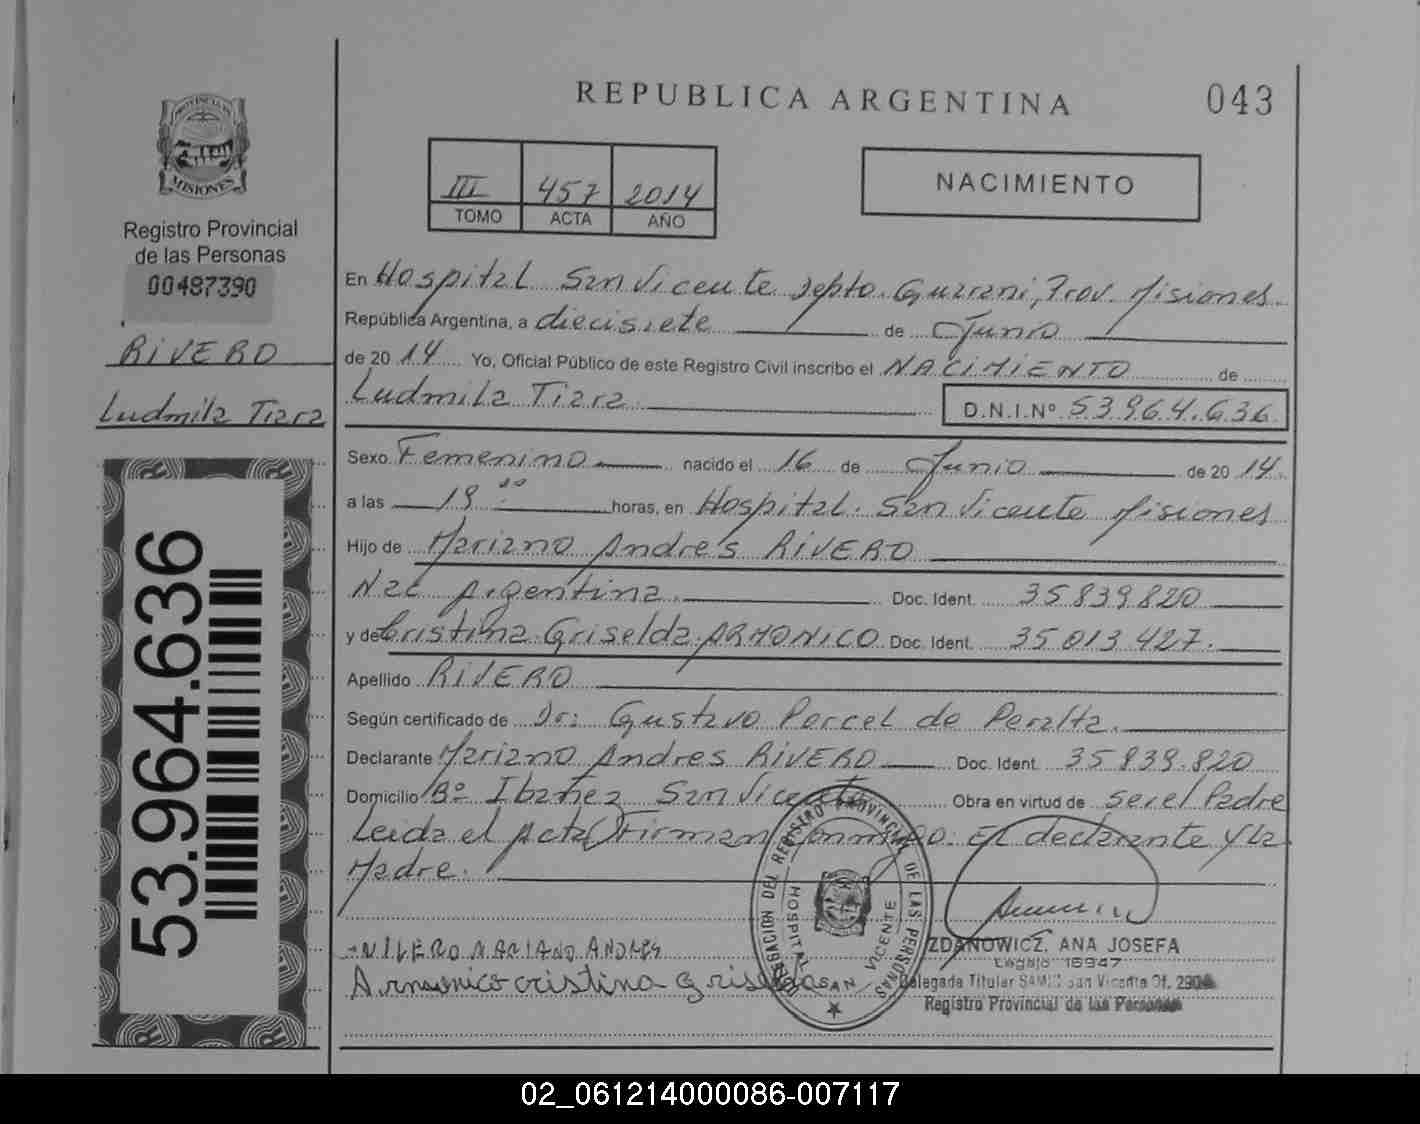 REPUBLICA ARGENTINA
043
PROVINCIA DE
MISIONES
Registro Provincial
de las Personas
00487390
RIVERO
Ludmila Tiara
53.964.636
III 457 2014
TOMO ACTA AÑO
NACIMIENTO
En Hospital San Vicente Depto. Guarani, Prov. Misiones
República Argentina, a diecisiete de Junio
de 2014 Yo, Oficial Público de este Registro Civil inscribo el NACIMIENTO de
Ludmila Tiara D.N.I.Nº 53964.636
Sexo Femenino nacido el 16 de Junio de 2014
a las horas, en Hospital San Vicente Misiones
Hijo de Mariano Andres RIVERO
Nac Argentina. Doc. Ident. 35839820
y de Cristina Griselda ARMONICO Doc. Ident. 35013427.
Apellido RIVERO
Según certificado de Dr: Gustavo Porcel de Peralta.
Declarante Mariano Andres RIVERO Doc. Ident. 35839.820
Domicilio Bº Ibañez San Vicente Obra en virtud de ser el Padre
Leida el Acta Firman Conmigo: El declarante y La
Madre.
RIVERO MARIANO ANDRES
Armonico cristina griselda
DELEGACION DEL REGISTRO PROVINCIAL DE LAS PERSONAS
HOSPITAL SAN VICENTE
ZDANOWICZ, ANA JOSEFA
Legajo 16947
Delegada Titular SAMIC San Vicente Of.
Registro Provincial de las Personas
02_061214000086-007117